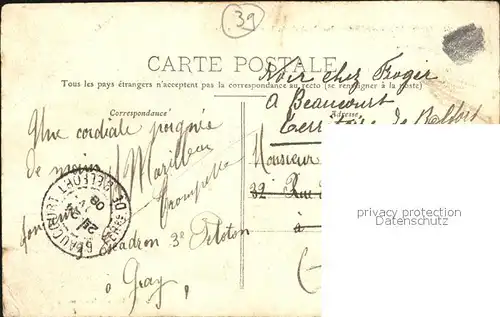 39
CARTE POSTALE
Tous les pays étrangers n'acceptent pas la correspondance au recto (se renseigner à la poste)
Correspondance
Adresse
Voir chez Froger
à Beaucourt
Territoire de Belfort
Une cordiale poignée
de main
Trompette
Escadron 3e Peloton
à Gray
Monsieur
32 Rue
à
BEAUCOURT
TERRE DE BELFORT
24
08
copyright picture
protected / permission required